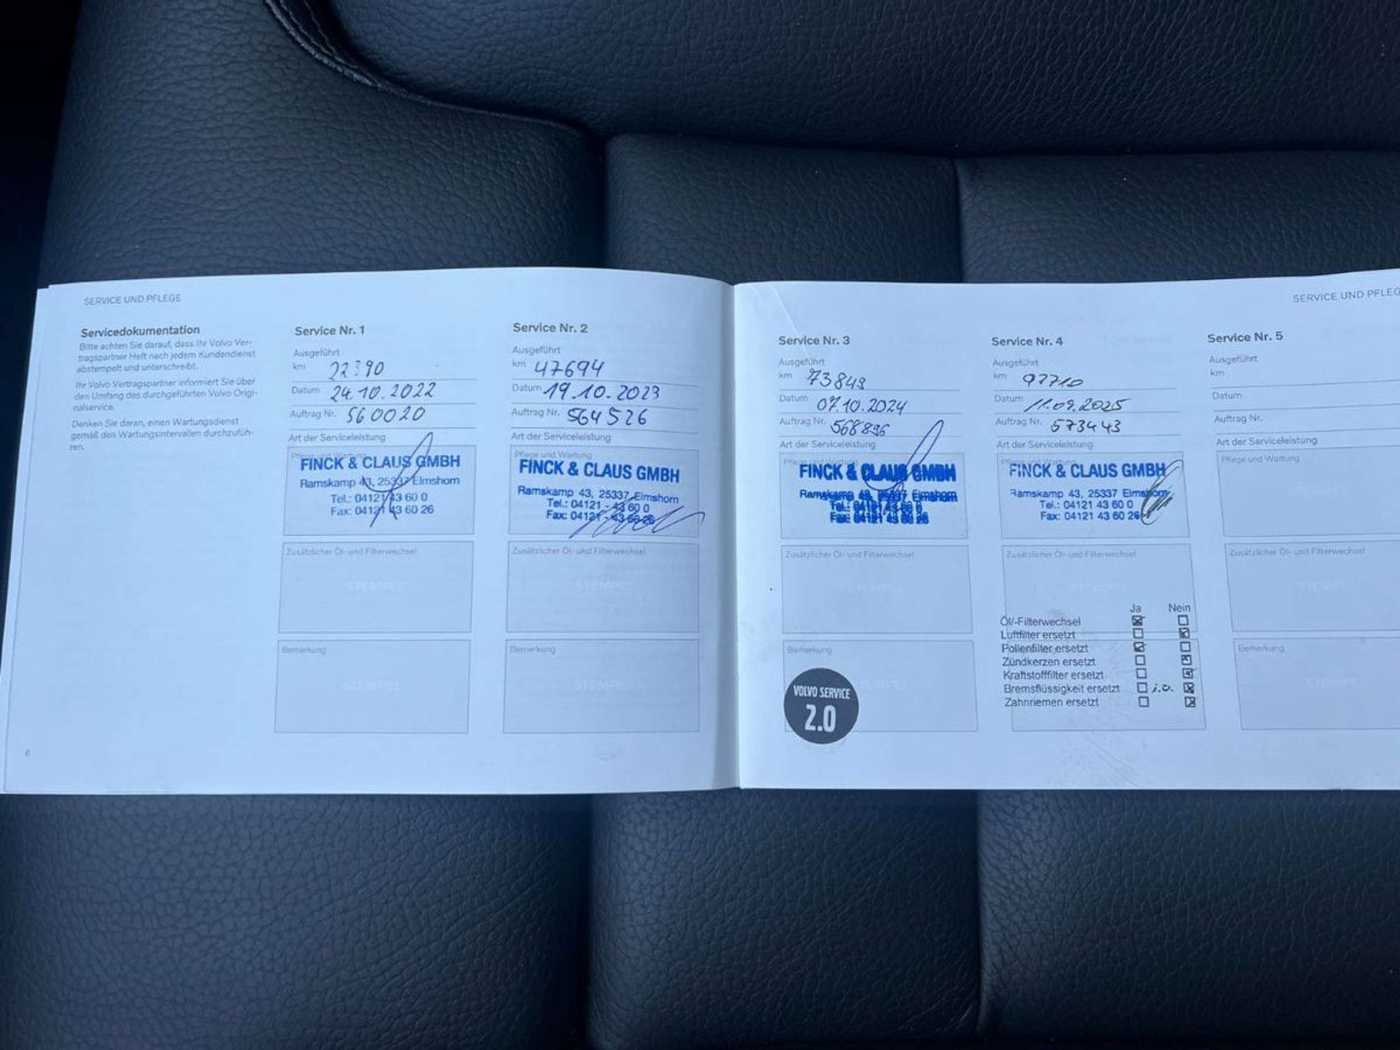 SERVICE UND PFLEGE
Servicedokumentation
Bitte achten Sie darauf, dass Ihr Volvo Ver-
tragspartner Heft nach jedem Kundendienst
abstempelt und unterschreibt.
Ihr Volvo Vertragspartner informiert Sie über
den Umfang des durchgeführten Volvo Origi-
nalservice.
Denken Sie daran, einen Wartungsdienst
gemäß den Wartungsintervallen durchzufüh-
ren.
6
Service Nr. 1
Ausgeführt
km
Datum 24.10.2022
Auftrag Nr. 560020
Art der Serviceleistung
Pflege und Wartung
FINCK & CLAUS GMBH
Ramskamp 43, 25337 Elmshorn
Tel.: 04121 43 60 0
Fax: 04121 43 60 26
Zusätzlicher Öl- und Filterwechsel
STEMPEL
Bemerkung
STEMPEL
Service Nr. 2
Ausgeführt
km 47694
Datum 19.10.2023
Auftrag Nr. 564526
Art der Serviceleistung
Pflege und Wartung
FINCK & CLAUS GMBH
Ramskamp 43, 25337 Elmshorn
Tel.: 04121 - 43 60 0
Fax: 04121 - 43 60 26
Zusätzlicher Öl- und Filterwechsel
STEMPEL
Bemerkung
STEMPEL
SERVICE UND PFLEG
Service Nr. 3
Ausgeführt
km 73849
Datum 07.10.2024
Auftrag Nr. 568896
Art der Serviceleistung
Pflege und Wartung
FINCK & CLAUS GMBH
Ramskamp 43, 25337 Elmshorn
Tel.: 04121 43 60 0
Fax: 04121 43 60 26
Zusätzlicher Öl- und Filterwechsel
Bemerkung
VOLVO SERVICE
2.0
Service Nr. 4
Ausgeführt
km 97710
Datum 11.09.2025
Auftrag Nr. 573443
Art der Serviceleistung
Pflege und Wartung
FINCK & CLAUS GMBH
Ramskamp 43, 25337 Elmshorn
Tel.: 04121 43 60 0
Fax: 04121 43 60 26
Zusätzlicher Öl- und Filterwechsel
Ja Nein
Öl/-Filterwechsel
Luftfilter ersetzt
Pollenfilter ersetzt
Zündkerzen ersetzt
Kraftstofffilter ersetzt
Bremsflüssigkeit ersetzt i.O.
Zahnriemen ersetzt
Service Nr. 5
Ausgeführt
km
Datum
Auftrag Nr.
Art der Serviceleistung
Pflege und Wartung
Zusätzlicher Öl- und Filterwechsel
Bemerkung